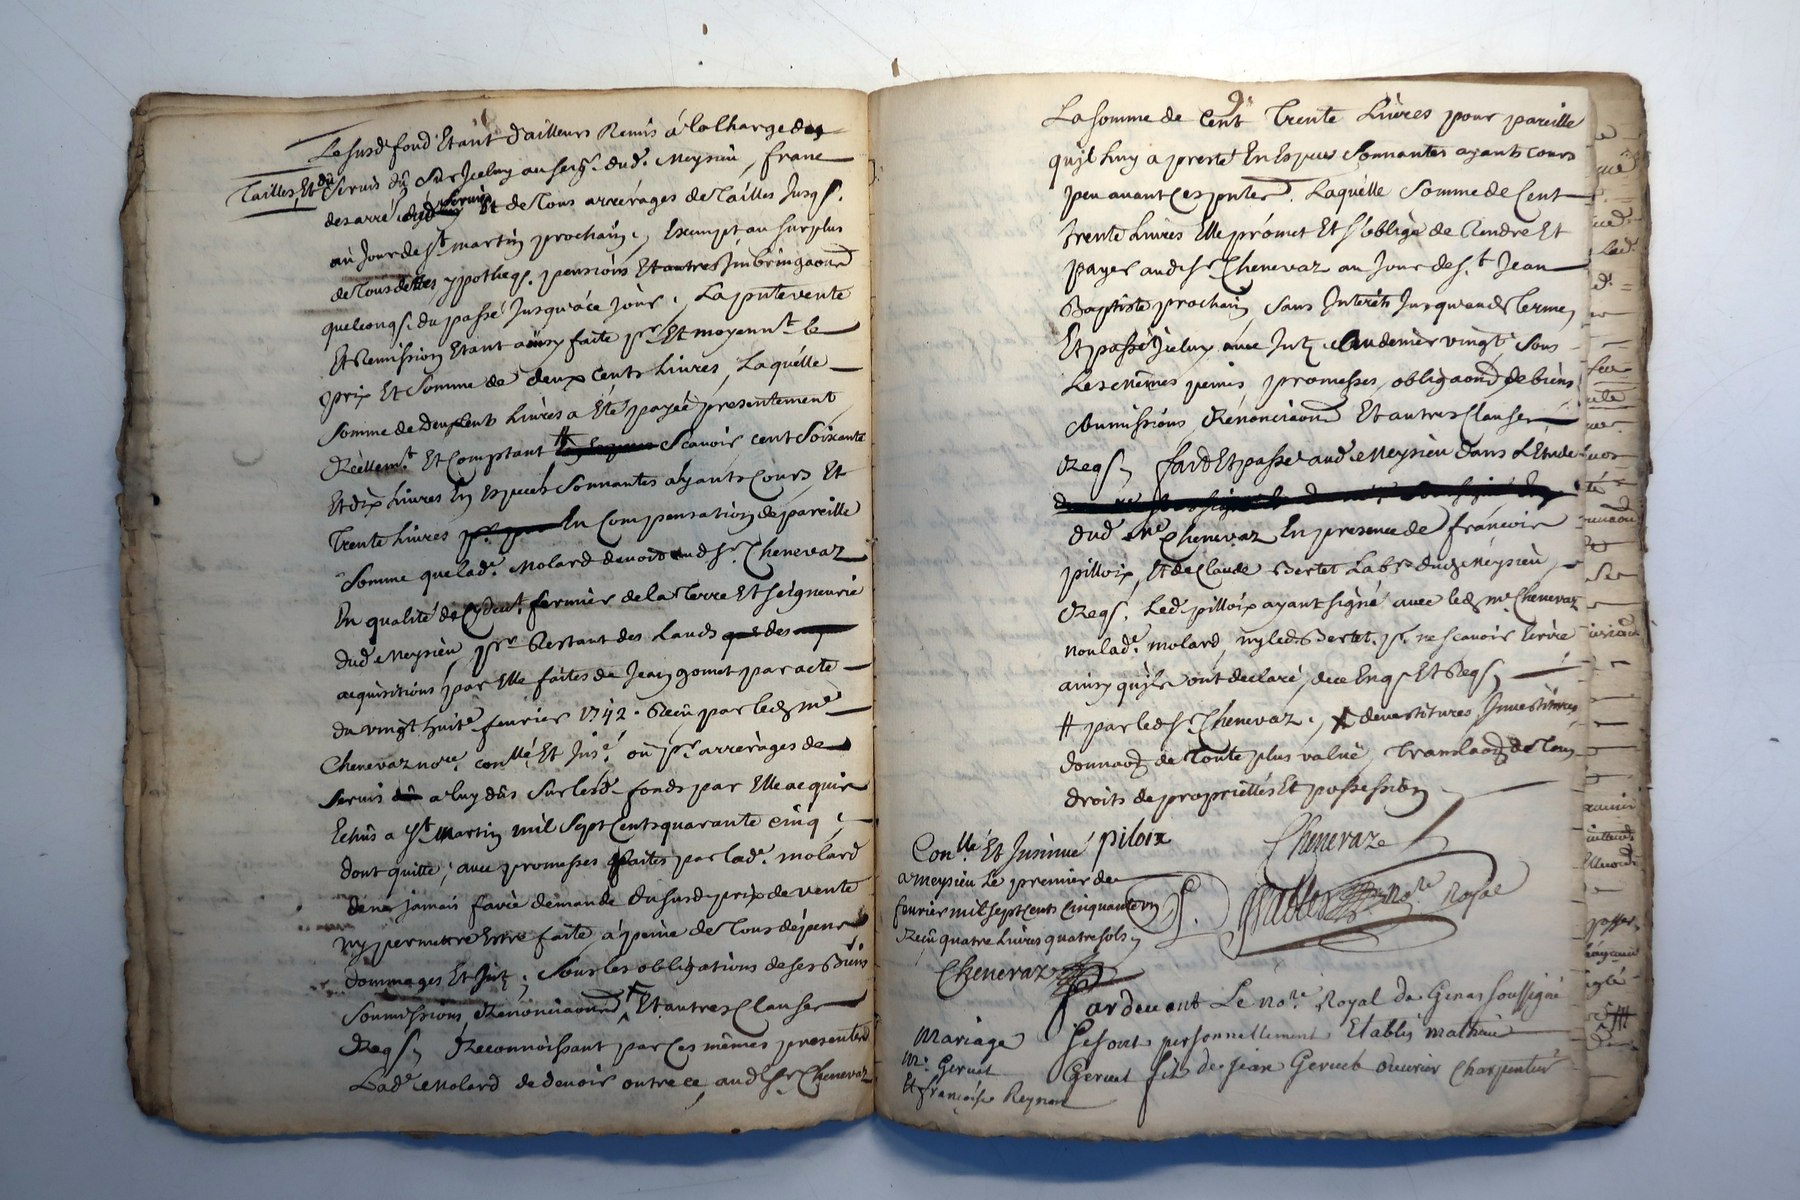 Le susd. fond Etant d'ailleurs Remis à la Charge des
Tailles, Et du Servis dû Sur Iceluy au seigr. dud. Meysieu, franc
des arré. dud. Servis Et de Tous arrérages de Tailles Jusqs.
au Jour de st. martin prochain, Exempt au surplus
de Tous dettes ypotheqs. pensions Et autres Imbringaons
quelconqs. du passé Jusqu'à ce Jour, La pnte vente
Et Remission Etant ainsy faite pr. Et moyennt. le
prix Et Somme de deux cents Livres, Laquelle
Somme de deux Cents Livres a Eté payée presentement
Réellemt. Et Comptant # Scavoir cent Soixante
Et dix Livres En Especes Sonnantes ayants Cours, Et
Trente Livres En Compensation de pareille
Somme que lad. Molard devoit aud. sr. Chenevaz
En qualité de fermier de la Terre Et seigneurie
dud. Meysieu, pr. Restant des Lauds des
acquisitions par Elle faites de Jean gonet par acte
du vingt huite. fevrier 1742. Reçu par led. me.
Chenevaz nore. conllé. Et Insé. ou pr. arrerages de
Servis a luy dûs Sur lesd. fonds par Elle acquis
Echûs a St. Martin mil Sept Cents quarante cinq,
dont quitte, avec promesses faites par lad. molard
de ne jamais faire demande du susd. prix de vente
ny permettre Estre faite, à peine de Tous dépens
dommages Et Intz, Sous les obligations de ses Biens
Soumissions Renonciaons X Et autres Clauses
Reqs. Reconnoissant par Ces mêmes presentes
Lad. Molard de devoir outre ce, aud. sr. Chenevaz
9
La somme de Cent Trente Livres pour pareille
qu'jl Luy a presté En Especes Sonnantes ayants cours
peu avant Ces pntes. Laquelle Somme de Cent
trente Livres Elle promet Et s'oblige de Rendre Et
payer aud. sr. Chenevaz au Jour de st. Jean
Baptiste prochain, Sans Interêts Jusqu'aud. Terme,
Et passé Jceluy avec Intz. au denier vingt, Sous
Les mêmes peines promesses, obligaons de biens
soumissions, Rénonciaons Et autres Clauses
Reqs, fait Et passé aud. Meysieu dans L'Etude
dud. me. Chenevaz En presence de francois
pilloix, Et de Claude Bertet Labr. dud. Meysieu,
Reqs. Led. pilloix ayant signé avec led. me. Chenevaz
non lad. molard, ny led. Bertet, pr. ne scavoir Ecrire
ainsy qu'jls ont declaré, de ce Enqs Et Reqs,
# par led. sr. Chenevaz. X devestitures, Investitures,
donnaon de Toute plus valuë, Translaon de Tous
droits de proprietés Et possession
Conllé. Et Insinué piloix Chenevaz
a meysieu Le premier de
fevrier mil sept Cents Cinquante un
Reçu quatre Livres quatre sols
Chenevaz nore. Royal
pardevant Le nore. Royal de Genas soussigné
Mariage Se sont personnellement Etablis mathieu
M. Gervet Gervet fils de Jean Gervet ouvrier Charpentier
Et françoise Reynon